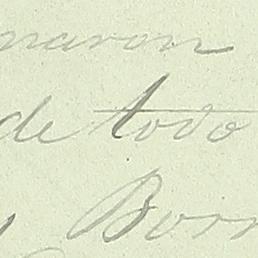 maron
de todo
Borr